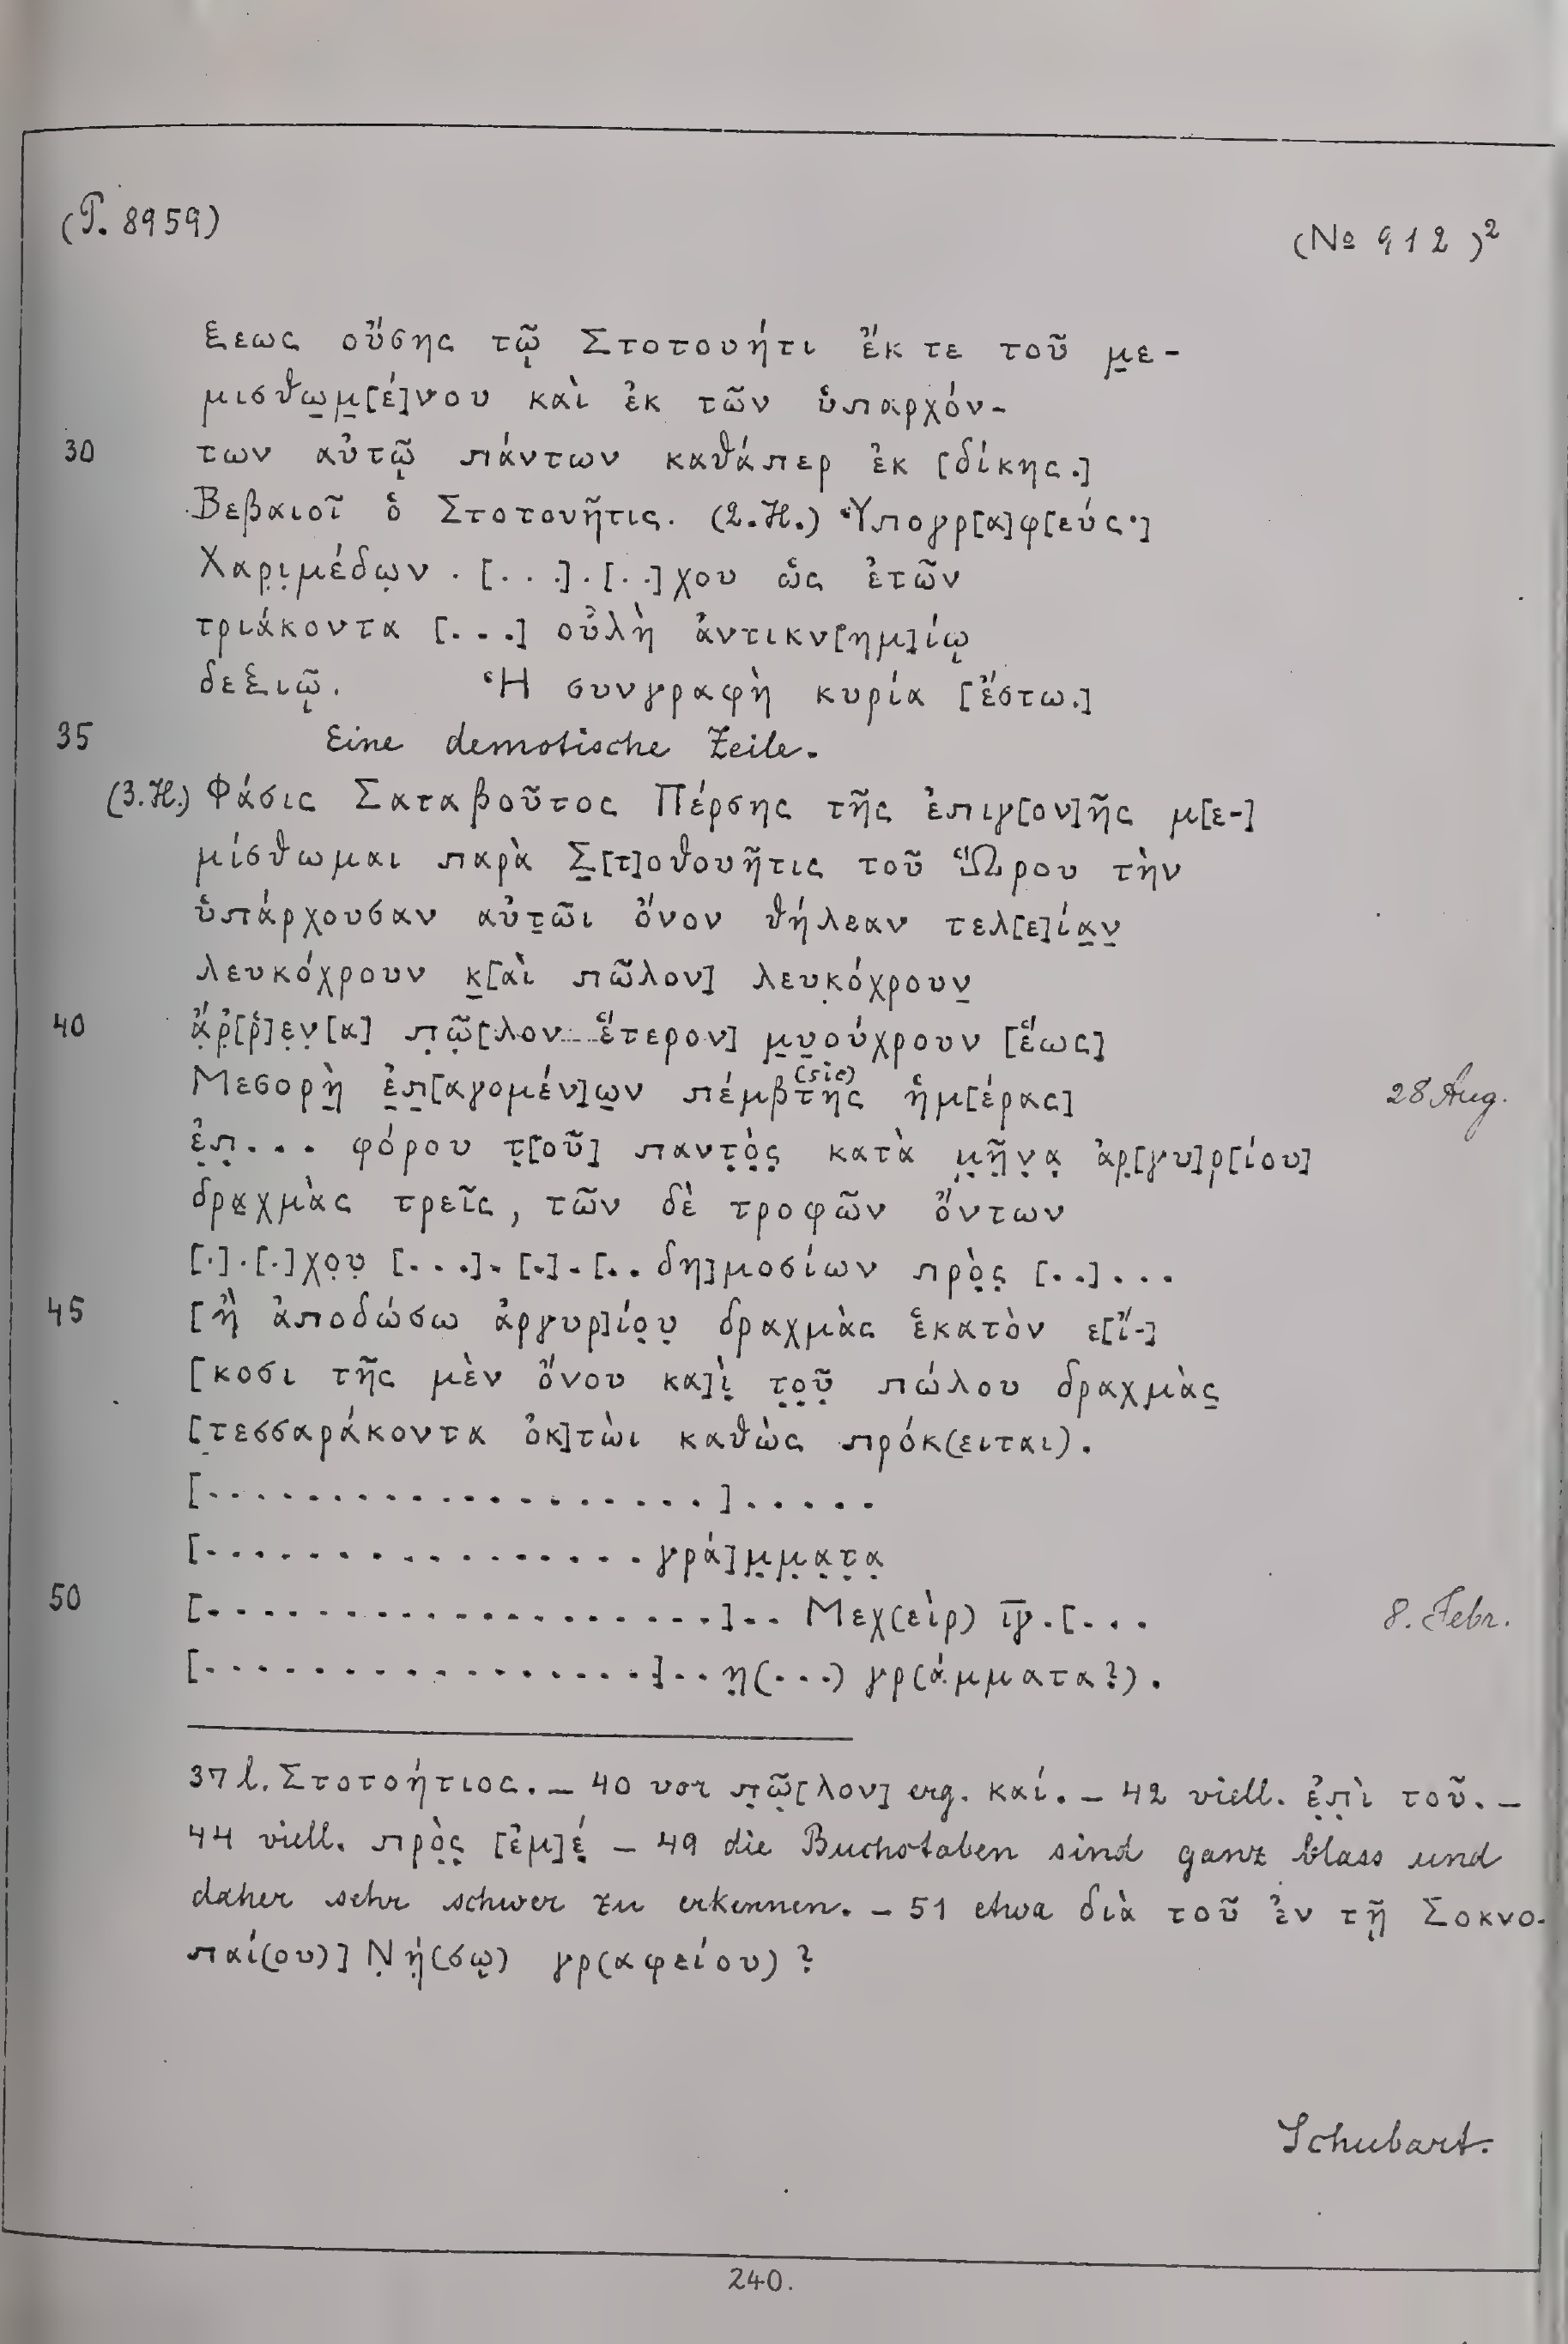 (P. 8959)
(№ 912)²
ξεως οὔσης τῷ Στοτουήτι ἔκ τε τοῦ μ̣ε-
μισθω̣μ̣[έ]νου καὶ ἐκ τῶν ὑπαρχόν-
30 των αὐτῷ πάντων καθάπερ ἐκ [δίκης.]
Βεβαιοῖ ὁ Στοτουῆτις. (2.H.) Ὑπογρ[α]φ[εύς·]
Χαρ̣ι̣μέδω̣ν . [...].[..]χου ὡς ἐτῶν
τριάκοντα [...] οὐλὴ ἀντικν[ημ]ίῳ
δεξιῷ. Ἡ συνγραφὴ κυρία [ἔστω.]
35 Eine demotische Zeile.
(3.H.) Φάσις Σαταβοῦτος Πέρσης τῆς ἐπιγ[ον]ῆς μ[ε-]
μίσθωμαι παρὰ Σ̣[τ]οθουῆτις τοῦ Ὥρου τὴν
ὑπάρχουσαν αὐτ̣ῶι ὄνον θήλεαν τελ[ε]ία̣ν̣
λευκόχρουν κ̣[αὶ πῶλον] λευκ̣όχρουν̣
40 ἄ̣ρ̣[ῥ]ε̣ν̣[α] π̣ῶ̣[λον ἕτερον] μ̣υ̣ούχρουν [ἕως]
Μεσορὴ̣ ἐ̣π̣[αγομέν]ω̣ν πέμβτης (sic) ἡμ[έρας] 28 Aug.
ἐ̣π̣... φόρου τ̣[οῦ] παντ̣ὸ̣ς̣ κατὰ μ̣ῆ̣ν̣α̣ ἀρ̣[γυ]ρ[ίου]
δρα̣χμὰς τρεῖς, τῶν δὲ τροφῶν ὄντων
[.].[.]χο̣υ̣ [...].[.].[.. δη]μοσίων πρὸ̣ς̣ [..]...
45 [ἢ ἀποδώσω ἀργυρ]ίο̣υ̣ δραχμὰς ἑκατὸν ε[ἴ-]
[κοσι τῆς μὲν ὄνου κα]ὶ̣ τ̣ο̣ῦ̣ πώλου δραχμὰς̣
[τεσσαράκοντα ὀκ]τὼι καθὼς πρόκ(ειται).
[...................].....
[................γρά]μ̣μ̣α̣τ̣α̣
50 [...................].. Μεχ(εὶρ) ι̅γ̅.[... 8. Febr.
[.................]..η̣(...) γρ(άμματα?).
37 l. Στοτοήτιος. – 40 vor π̣ῶ̣[λον] erg. καί. – 42 viell. ἐ̣π̣ὶ τοῦ. –
44 viell. πρὸ̣ς̣ [ἐμ]έ̣ – 49 die Buchstaben sind ganz blass und
daher sehr schwer zu erkennen. – 51 etwa διὰ τοῦ ἐν τῇ Σοκνο-
παί(ου)] Ν̣ή̣(σῳ) γρ(αφείου)?
Schubart.
240.